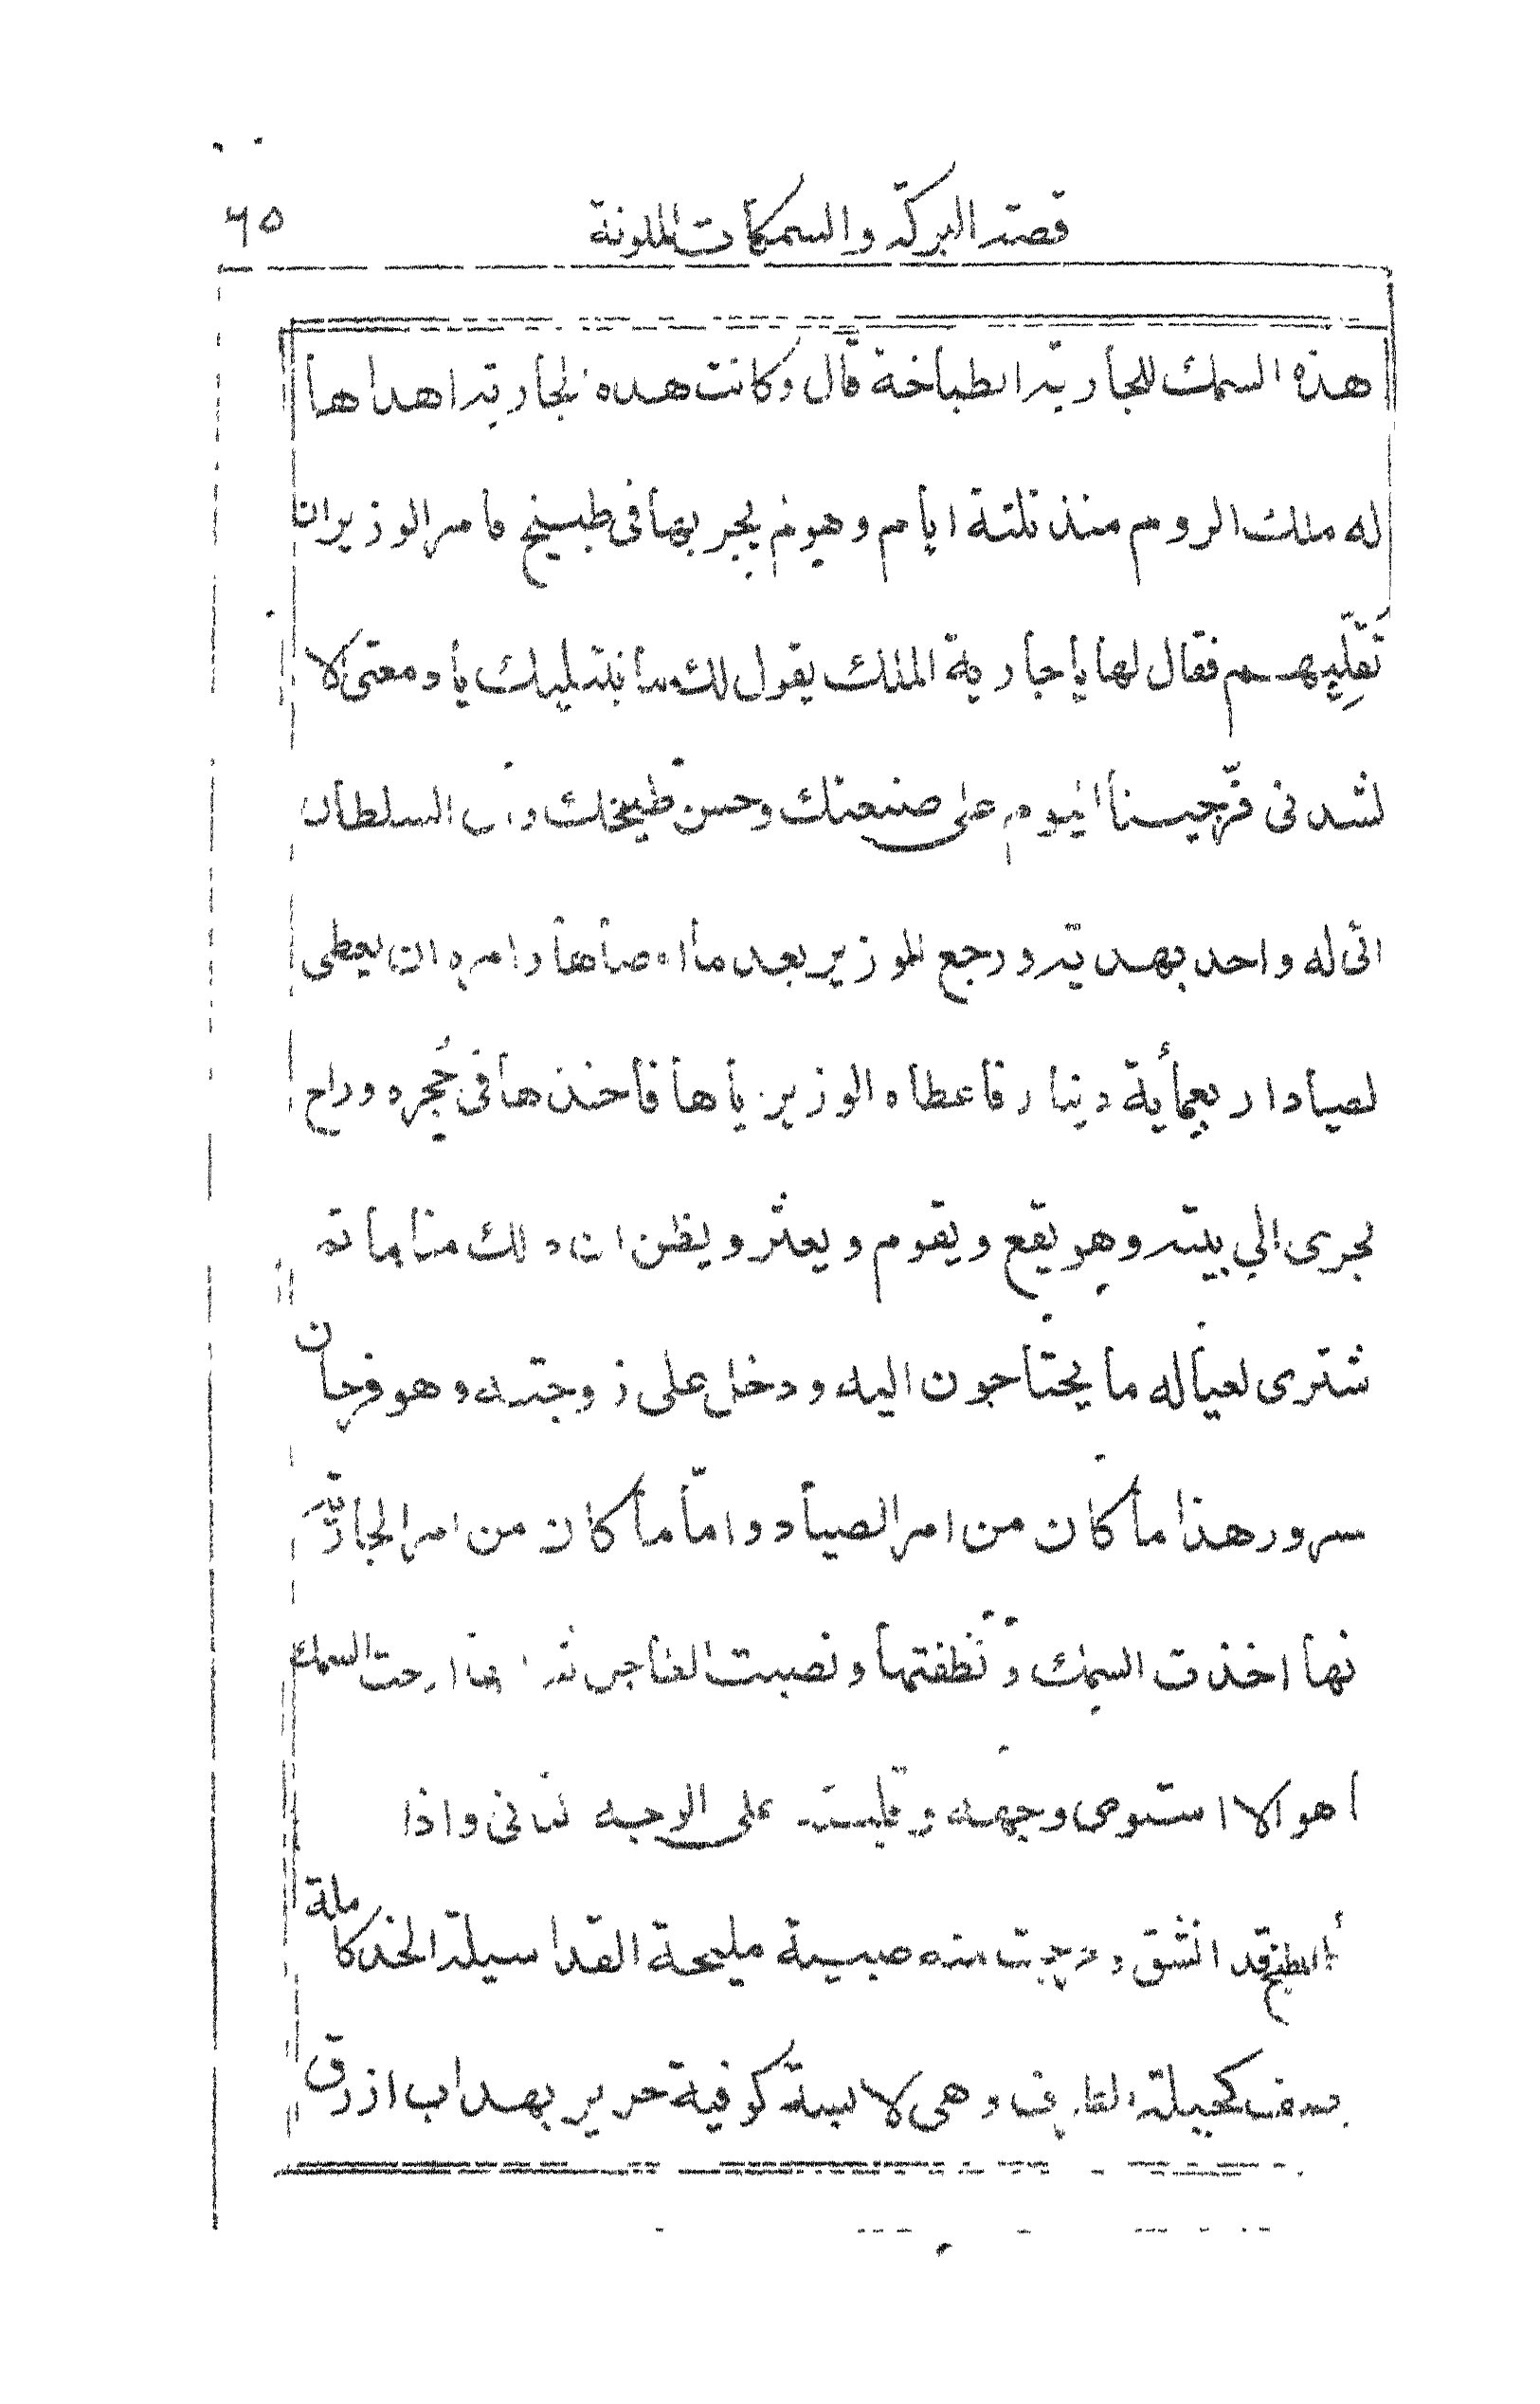 قصته البركة والسمكات الملونة ٦٥
هذه السمك للجارية الطباخة قال وكانت هده الجارية اهداها
له ملك الروم منذ تلتة ايام وهو لم يجربها فى طبيخ فامر الوزير ان
تقليهم فقال لها يا جارية الملك يقول لك يا دمعتى الا
لشدتى فرّجينا اليوم على صنعتك وحسن طبيخك السلطان
اتى له واحد بهدية ورجع الوزير بعد ما اوصاها وامره ان يعطى
لصياد اربعمأية دينار فاعطاه الوزير ياها فاخذها فى حُجره وراح
يجرى الي بيته وهو يقع ويقوم ويعثر ويظن ان دلك منام انه
شترى لعياله ما يحتاجون اليه ودخل على زوجته وهو فرحان
سرور هذا ما كان من امر الصياد وامّا ما كان من امر الجارية
نها اخذت السمك ونظفتها ونصبت الطاجن ارحت السمك
هو الا استوى وجهه وقلبته على الوجه تانى واذا
المطبخ قد انشق وخرجت منه صبية مليحة القد اسيلة الخد كاملة
كحيلة وهى لابسة كوفية حرير بهداب ازرق